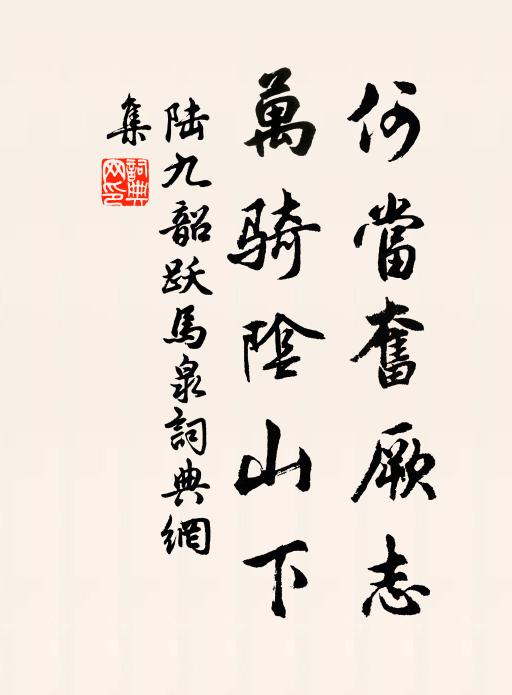 何當奮厥志
萬騎陰山下
陆九韶跃馬泉詞典網
集
詞典網印